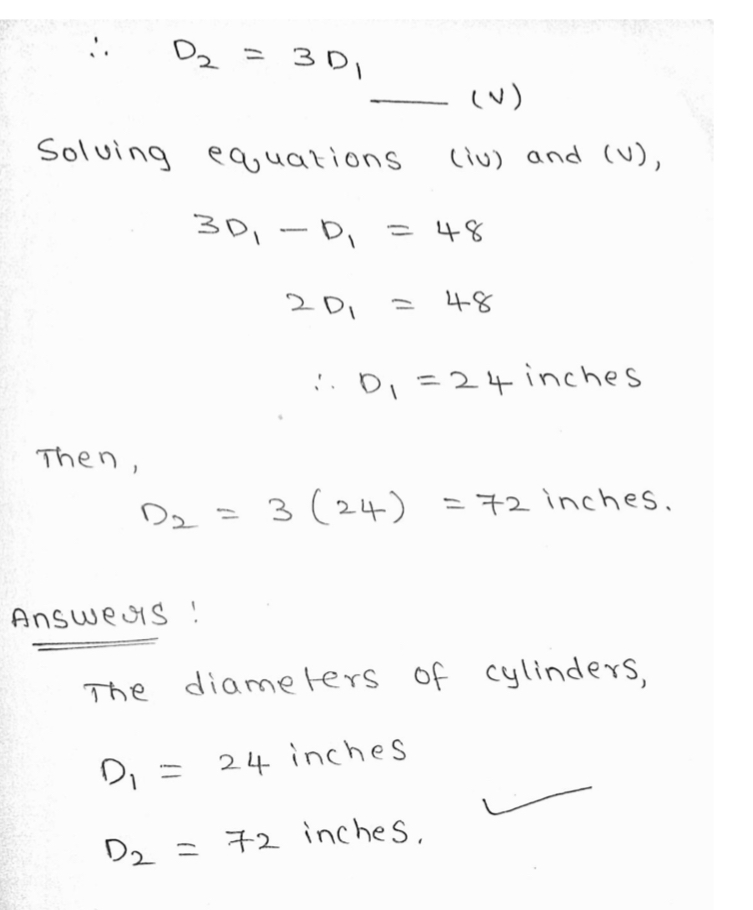 ∴ D₂ = 3D₁
—— (v)
Solving equations (iv) and (v),
3D₁ – D₁ = 48
2D₁ = 48
∴ D₁ = 24 inches
Then,
D₂ = 3 (24) = 72 inches.
Answers :
The diameters of cylinders,
D₁ = 24 inches
D₂ = 72 inches.